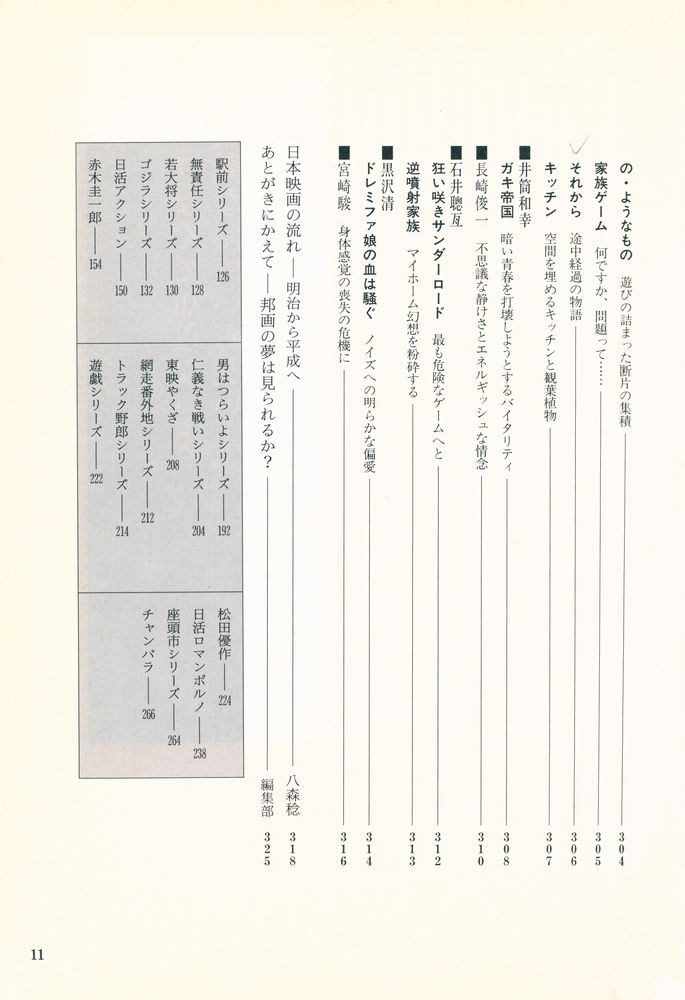 の・ようなもの　遊びの詰まった断片の集積――304
家族ゲーム　何ですか、問題って……――305
それから　途中経過の物語――306
キッチン　空間を埋めるキッチンと観葉植物――307
■井筒和幸
ガキ帝国　暗い青春を打壊しようとするバイタリティ――308
■長崎俊一　不思議な静けさとエネルギッシュな情念――310
■石井聰亙
狂い咲きサンダーロード　最も危険なゲームへと――312
逆噴射家族　マイホーム幻想を粉砕する――313
■黒沢清
ドレミファ娘の血は騒ぐ　ノイズへの明らかな偏愛――314
■宮崎駿　身体感覚の喪失の危機に――316
日本映画の流れ――明治から平成へ――八森稔　318
あとがきにかえて――邦画の夢は見られるか？――編集部　325
駅前シリーズ――126
無責任シリーズ――128
若大将シリーズ――130
ゴジラシリーズ――132
日活アクション――150
赤木圭一郎――154
男はつらいよシリーズ――192
仁義なき戦いシリーズ――204
東映やくざ――208
網走番外地シリーズ――212
トラック野郎シリーズ――214
遊戯シリーズ――222
松田優作――224
日活ロマンポルノ――238
座頭市シリーズ――264
チャンバラ――266
11